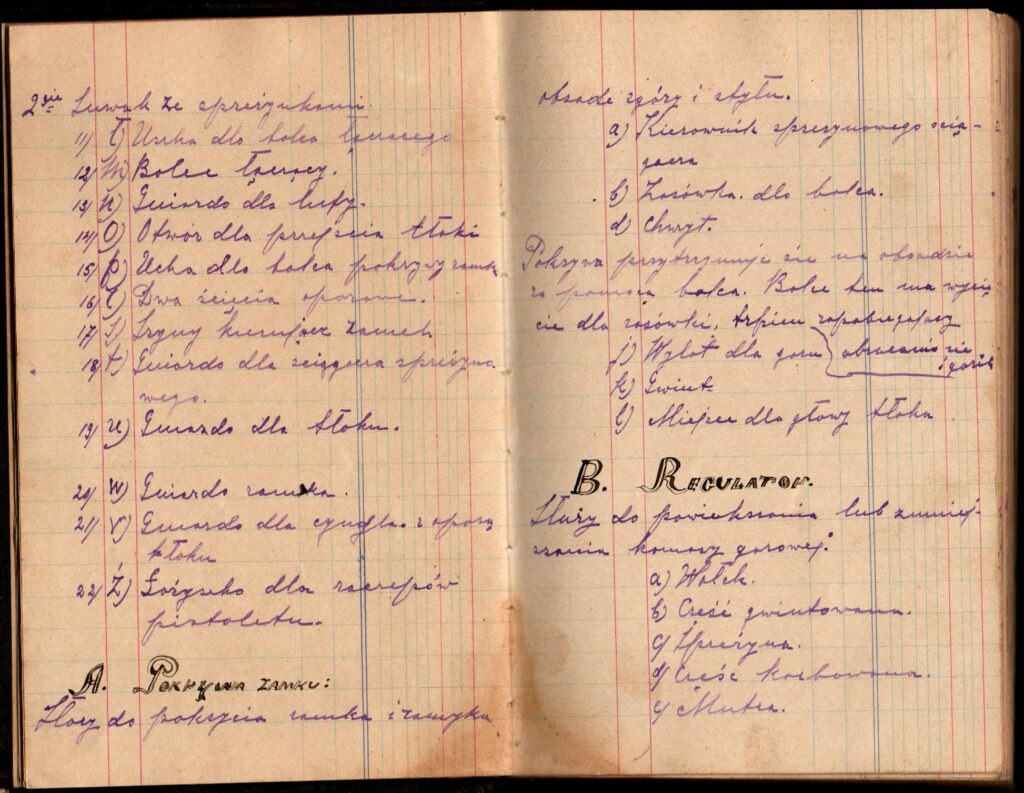 2gie Suwak ze sprężynkami.
11/ ł) Uszka dla bolca łączącego
12/ m) Bolec łączący.
13/ n) Gniazdo dla lufy.
14/ O) Otwór dla przejścia tłoki
15/ p) Ucha dla bolca pokrywy zamka
16/ Dwa ścięcia oporowe.
17/ S) Szyny kierujące zamek
18/ t) Gniazdo dla ściągacza spreżyno-
wego.
19/ u) Gniazdo dla tłoku.
20/ W) Gniazdo zamka.
21/ Y) Gniazdo dla cyngla z oporą
tłoku
22/ Ż) Łożysko dla zaczepów
pistoletu.
A. POKRYWA ZAMKU:
Słózy do pokrycia zamka i zamyka
obsade zgóry i styłu.
a) Kierownik sprezynowego ścią-
gacza
b) Zasówka. dla bolca.
d) Chwyt.
Pokrywa przytrzymuje sie na obsadzie
za pomocą bolca. Bolec ten ma wycię-
cie dla zasówki, trzpien zapobiegający
j) Wylot dla gazu obracaniu sie
k) Gwint
l) Miejsce dla głowy tłoka
B. REGULATOR.
Służy do powiekszania lub zmniej-
szania komory gazowej.
a) Wałek.
b) Cześć gwintowana.
c) Spreżyna.
d) Cześć karbowana.
e) Mutra.